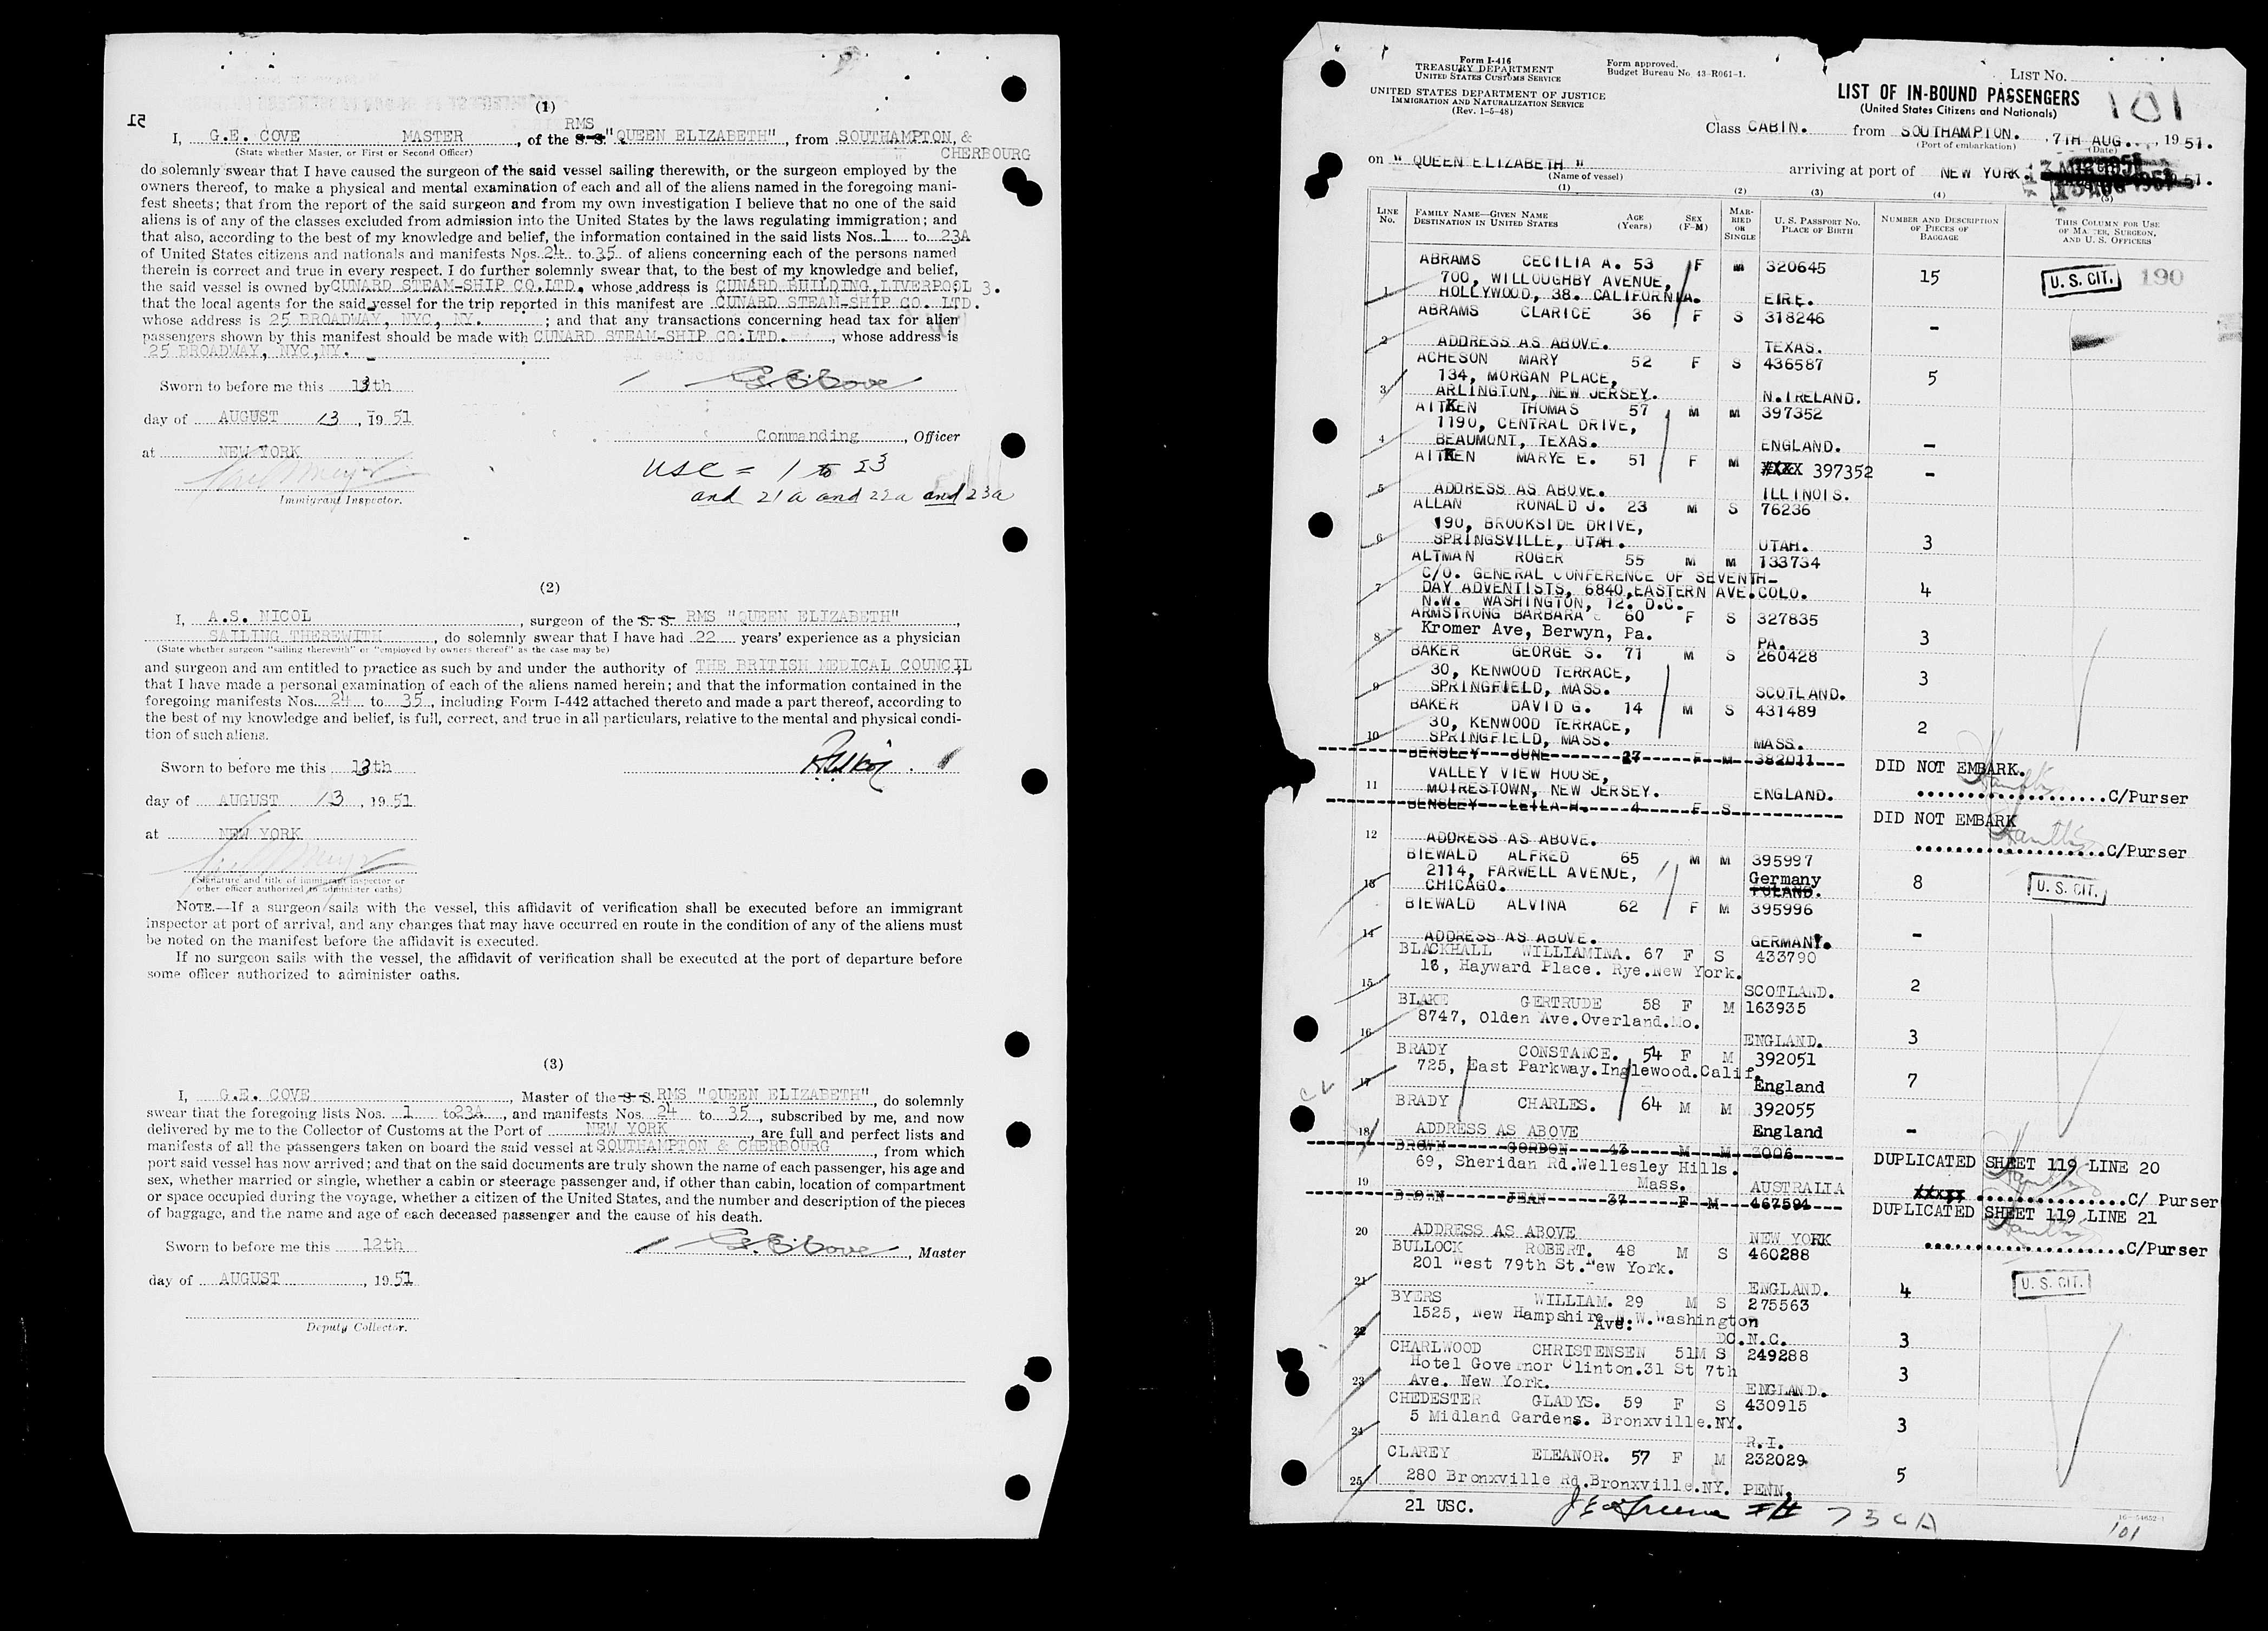 51
(1)
I, G.E. COVE MASTER , of the S.S. RMS "QUEEN ELIZABETH", from SOUTHAMPTON, & CHERBOURG
(State whether Master, or First or Second Officer)
do solemnly swear that I have caused the surgeon of the said vessel sailing therewith, or the surgeon employed by the
owners thereof, to make a physical and mental examination of each and all of the aliens named in the foregoing mani-
fest sheets; that from the report of the said surgeon and from my own investigation I believe that no one of the said
aliens is of any of the classes excluded from admission into the United States by the laws regulating immigration; and
that also, according to the best of my knowledge and belief, the information contained in the said lists Nos. 1 to 23A
of United States citizens and nationals and manifests Nos. 24 to 35 of aliens concerning each of the persons named
therein is correct and true in every respect. I do further solemnly swear that, to the best of my knowledge and belief,
the said vessel is owned by CUNARD STEAM-SHIP CO.LTD. whose address is CUNARD BUILDING, LIVERPOOL 3.
that the local agents for the said vessel for the trip reported in this manifest are CUNARD STEAM-SHIP CO. LTD.
whose address is 25 BROADWAY, NYC, NY. ; and that any transactions concerning head tax for alien
passengers shown by this manifest should be made with CUNARD STEAM-SHIP CO.LTD. , whose address is
25 BROADWAY, NYC,NY.
Sworn to before me this 13th
day of AUGUST 13 , 19 51
Commanding , Officer
at NEW YORK
Immigrant Inspector.
USC = 1 to 23
and 21a and 22a and 23a
(2)
I, A.S. NICOL , surgeon of the S. S. RMS "QUEEN ELIZABETH" ,
SAILING THEREWITH , do solemnly swear that I have had 22 years' experience as a physician
(State whether surgeon "sailing therewith" or "employed by owners thereof" as the case may be)
and surgeon and am entitled to practice as such by and under the authority of THE BRITISH MEDICAL COUNCIL,
that I have made a personal examination of each of the aliens named herein; and that the information contained in the
foregoing manifests Nos. 24 to 35, including Form I-442 attached thereto and made a part thereof, according to
the best of my knowledge and belief, is full, correct, and true in all particulars, relative to the mental and physical condi-
tion of such aliens.
Sworn to before me this 13th
day of AUGUST 13 , 19 51
at NEW YORK
(Signature and title of immigrant inspector or
other officer authorized to administer oaths)
NOTE.—If a surgeon sails with the vessel, this affidavit of verification shall be executed before an immigrant
inspector at port of arrival, and any changes that may have occurred en route in the condition of any of the aliens must
be noted on the manifest before the affidavit is executed.
If no surgeon sails with the vessel, the affidavit of verification shall be executed at the port of departure before
some officer authorized to administer oaths.
(3)
I, G.E. COVE , Master of the S. S. RMS "QUEEN ELIZABETH", do solemnly
swear that the foregoing lists Nos. 1 to 23A , and manifests Nos. 24 to 35 , subscribed by me, and now
delivered by me to the Collector of Customs at the Port of NEW YORK , are full and perfect lists and
manifests of all the passengers taken on board the said vessel at SOUTHAMPTON & CHERBOURG , from which
port said vessel has now arrived; and that on the said documents are truly shown the name of each passenger, his age and
sex, whether married or single, whether a cabin or steerage passenger and, if other than cabin, location of compartment
or space occupied during the voyage, whether a citizen of the United States, and the number and description of the pieces
of baggage, and the name and age of each deceased passenger and the cause of his death.
Sworn to before me this 12th
, Master
day of AUGUST , 19 51
Deputy Collector.
Form I-416
TREASURY DEPARTMENT
UNITED STATES CUSTOMS SERVICE
Form approved.
Budget Bureau No. 43-R061-1.
UNITED STATES DEPARTMENT OF JUSTICE
IMMIGRATION AND NATURALIZATION SERVICE
(Rev. 1-5-48)
LIST NO.
LIST OF IN-BOUND PASSENGERS
(United States Citizens and Nationals)
101
Class CABIN. from SOUTHAMPTON. , 7TH AUG. , 19 51.
(Port of embarkation) (Date)
on " QUEEN ELIZABETH " arriving at port of NEW YORK. 51.
(Name of vessel)
(1) (2) (3) (4) (5)
LINE No. FAMILY NAME—GIVEN NAME DESTINATION IN UNITED STATES AGE (Years) SEX (F-M) MARRIED OR SINGLE U. S. PASSPORT NO. PLACE OF BIRTH NUMBER AND DESCRIPTION OF PIECES OF BAGGAGE THIS COLUMN FOR USE OF MASTER, SURGEON, AND U. S. OFFICERS
ABRAMS CECILIA A. 53 F M 320645
700, WILLOUGHBY AVENUE, 15 U. S. CIT. 190
1 HOLLYWOOD, 38. CALIFORNIA. EIRE.
ABRAMS CLARICE 36 F S 318246
-
2 ADDRESS AS ABOVE. TEXAS.
ACHESON MARY 52 F S 436587
134, MORGAN PLACE, 5
3 ARLINGTON, NEW JERSEY. N.IRELAND.
AITKEN THOMAS 57 M M 397352
1190, CENTRAL DRIVE,
4 BEAUMONT, TEXAS. ENGLAND. -
AITKEN MARYE E. 51 F M XXXX 397352 -
5 ADDRESS AS ABOVE. ILLINOIS.
ALLAN RONALD J. 23 M S 76236
190, BROOKSIDE DRIVE,
6 SPRINGSVILLE, UTAH. UTAH. 3
ALTMAN ROGER 55 M M 133734
C/O. GENERAL CONFERENCE OF SEVENTH-
7 DAY ADVENTISTS, 6840,EASTERN AVE. COLO. 4
N.W. WASHINGTON, 12. D.C.
ARMSTRONG BARBARA 60 F S 327835
8 Kromer Ave, Berwyn, Pa. PA. 3
BAKER GEORGE S. 71 M S 260428
30, KENWOOD TERRACE, 3
9 SPRINGFIELD, MASS. SCOTLAND.
BAKER DAVID G. 14 M S 431489
30, KENWOOD TERRACE, 2
10 SPRINGFIELD, MASS. MASS.
BENSLEY JUNE 27 F M 382011 DID NOT EMBARK.
VALLEY VIEW HOUSE,
11 MOIRESTOWN, NEW JERSEY. ENGLAND. C/Purser
BENSLEY LEILA H. 4 F S DID NOT EMBARK
12 ADDRESS AS ABOVE. C/Purser
BIEWALD ALFRED 65 M M 395997
2114, FARWELL AVENUE, Germany
13 CHICAGO. POLAND. 8 U. S. CIT.
BIEWALD ALVINA 62 F M 395996
14 ADDRESS AS ABOVE. GERMANY. -
BLACKHALL WILLIAMINA. 67 F S 433790
16, Hayward Place. Rye.New York.
15 SCOTLAND. 2
BLAKE GERTRUDE 58 F M 163935
8747, Olden Ave.Overland.Mo.
16 ENGLAND. 3
BRADY CONSTANCE. 54 F M 392051
725, East Parkway.Inglewood.Calif.
17 England 7
BRADY CHARLES. 64 M M 392055
18 ADDRESS AS ABOVE England -
BROWN GORDON 43 M M 3006 DUPLICATED SHEET 119 LINE 20
69, Sheridan Rd.Wellesley Hills.
19 Mass. AUSTRALIA xxxxx C/ Purser
JEAN 37 F M 467591 DUPLICATED SHEET 119 LINE 21
20 ADDRESS AS ABOVE NEW YORK C/Purser
BULLOCK ROBERT. 48 M S 460288
201 West 79th St.New York.
21 ENGLAND. 4 U. S. CIT.
BYERS WILLIAM. 29 M S 275563
1525, New Hampshire Ave: N.W.Washington
22 DC. N.C. 3
CHARLWOOD CHRISTENSEN 51 M S 249288
Hotel Governor Clinton.31 St 7th 3
23 Ave. New York. ENGLAND.
CHEDESTER GLADYS. 59 F S 430915
5 Midland Gardens. Bronxville.NY.
24 R.I. 3
CLAREY ELEANOR. 57 F M 232029
25 280 Bronxville Rd.Bronxville.NY. PENN. 5
21 USC.
16-54652-1
101